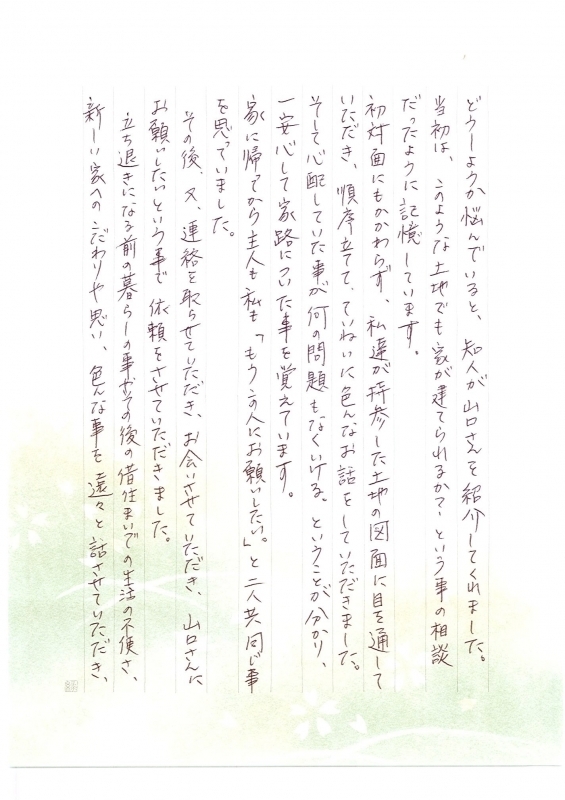 どうしようか悩んでいると、知人が山口さんを紹介してくれました。
当初は、このような土地でも家が建てられるか？という事の相談
だったように記憶しています。
初対面にもかかわらず、私達が持参した土地の図面に目を通して
いただき、順序立てて、ていねいに色んなお話をしていただきました。
そして心配していた事が何の問題もなくいける、ということが分かり、
一安心して家路についた事を覚えています。
家に帰ってから主人も私も「もうこの人にお願いしたい。」と二人共同じ事
を思っていました。
その後、又、連絡を取らせていただき、お会いさせていただき、山口さんに
お願いしたいという事で依頼をさせていただきました。
立ち退きになる前の暮らしの事やその後の借住まいでの生活の不便さ、
新しい家へのこだわりや思い、色んな事を 々と話させていただき、